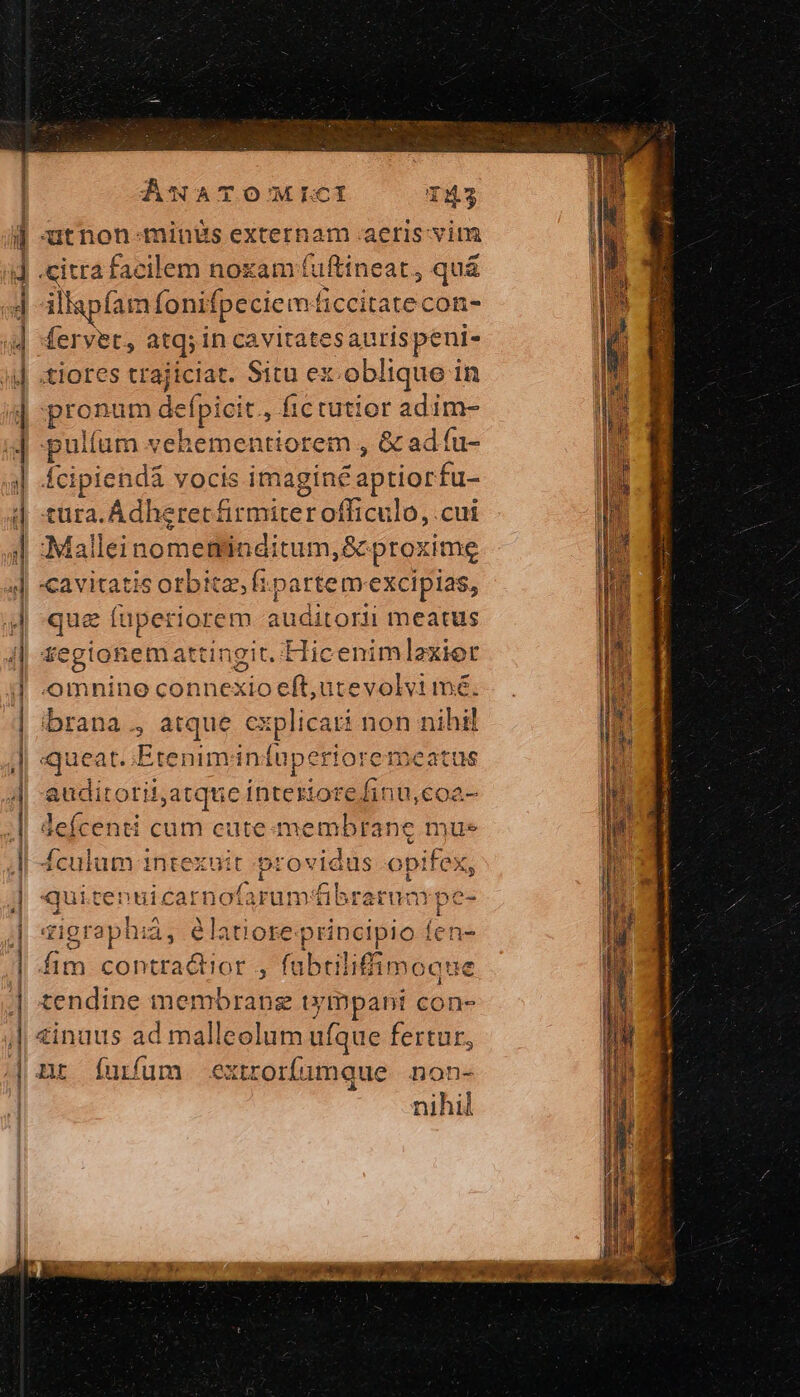 ANATOMICI 143
ut non minùs externam aeris vim
citra facilem noxam ſuſtineat, quá
illapſam ſoniſpeciem ſiccitate con-
ſervet, atq; in cavitates auris peni-
tiores trajiciat. Situ ex obliquo in
pronum deſpicit, ſic tutior ad im-
pulſum vehementiorem, & ad ſu-
ſcipiendā vocis imaginē aptior fu-
tura. Adheret firmiter officulo, cui
Mallei nomen inditum, & proxime
cavitatis orbitæ, ſi partem excipias,
quæ ſuperiorem auditorii meatus
regionem attingit. Hic enim laxior
omnino connexio eſt, ut evolvi mē-
brana, atque explicari non nihil
queat. Etenim in ſuperiore meatus
auditorii, atque interiore ſinu, coa-
leſcenti cum cute membranę mu-
ſculum intexuit providus opifex,
qui tenui carnoſarum fibrarum pe-
rigraphiā, è latiore principio ſen-
ſim contractior, ſubtiliſſimoque
tendine membranę tympani con-
tinuus ad malleolum uſque fertur,
ut ſurſum extrorſumque non-
nihil